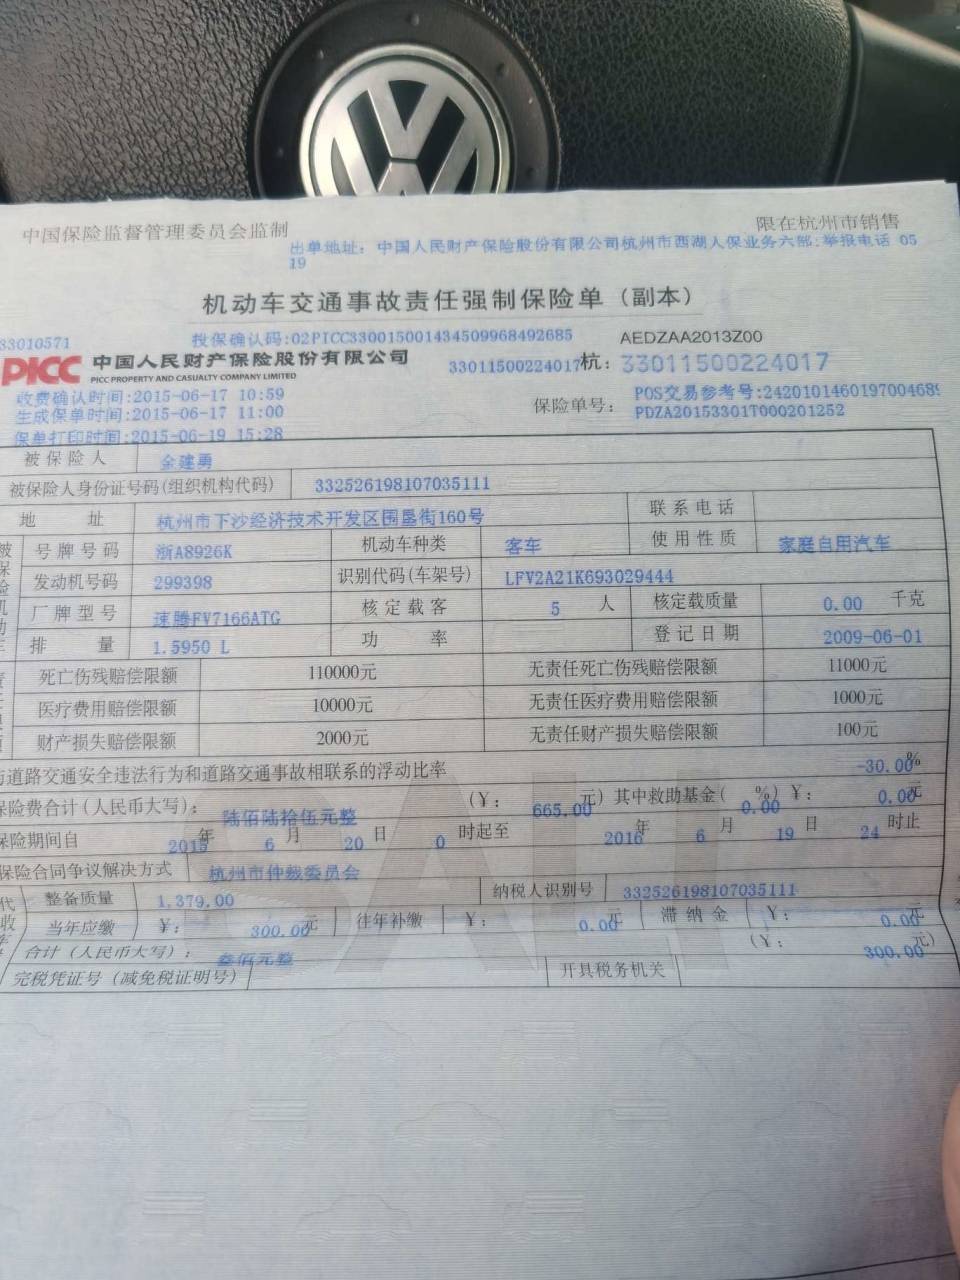 中国保险监督管理委员会监制
限在杭州市销售
出单地址：中国人民财产保险股份有限公司杭州市西湖人保业务六部;举报电话 05
19
机动车交通事故责任强制保险单（副本）
33010571
投保确认码:02PICC330015001434509968492685
AEDZAA2013Z00
PICC 中国人民财产保险股份有限公司
PICC PROPERTY AND CASUALTY COMPANY LIMITED
33011500224017 杭： 33011500224017
收费确认时间:2015-06-17 10:59
生成保单时间:2015-06-17 11:00
保单打印时间:2015-06-19 15:28
POS交易参考号:24201014601970046895
保险单号： PDZA20153301T000201252
被保险人 余建勇
被保险人身份证号码(组织机构代码) 332526198107035111
地 址 杭州市下沙经济技术开发区围垦街160号 联系电话
号牌号码 浙A8926K 机动车种类 客车 使用性质 家庭自用汽车
发动机号码 299398 识别代码(车架号) LFV2A21K693029444
厂牌型号 速腾FV7166ATG 核定载客 5 人 核定载质量 0.00 千克
排 量 1.5950 L 功 率 登记日期 2009-06-01
死亡伤残赔偿限额 110000元 无责任死亡伤残赔偿限额 11000元
医疗费用赔偿限额 10000元 无责任医疗费用赔偿限额 1000元
财产损失赔偿限额 2000元 无责任财产损失赔偿限额 100元
与道路交通安全违法行为和道路交通事故相联系的浮动比率 -30.00%
保险费合计(人民币大写)： 陆佰陆拾伍元整 (￥： 665.00 元) 其中救助基金( 0.00 %)￥： 0.00元
保险期间自 2015年 6 月 20 日 0 时起至 2016年 6 月 19 日 24 时止
保险合同争议解决方式 杭州市仲裁委员会
整备质量 1,379.00 纳税人识别号 332526198107035111
当年应缴 ￥： 300.00元 往年补缴 ￥： 0.00元 滞纳金 ￥： 0.00元
合计(人民币大写)： 叁佰元整 (￥： 300.00元)
完税凭证号(减免税证明号) 开具税务机关